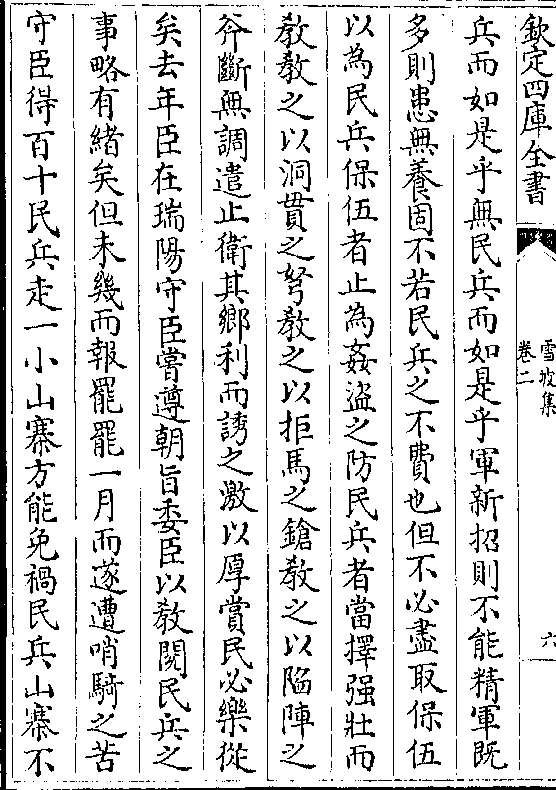 欽定四庫全書
雪坡集
卷二
六
兵而如是乎無民兵而如是乎軍新招則不能精軍既
多則患無養固不若民兵之不費也但不必盡取保伍
以為民兵保伍者止為姦盜之防民兵者當擇强壯而
教教之以洞貫之弩教之以拒馬之鎗教之以陷陣之
斧斷無調遣止衛其鄉利而誘之激以厚賞民必樂從
矣去年臣在瑞陽守臣嘗遵朝旨委臣以教閱民兵之
事略有緒矣但未幾而報罷罷一月而遂遭哨騎之苦
守臣得百十民兵走一小山寨方能免禍民兵山寨不